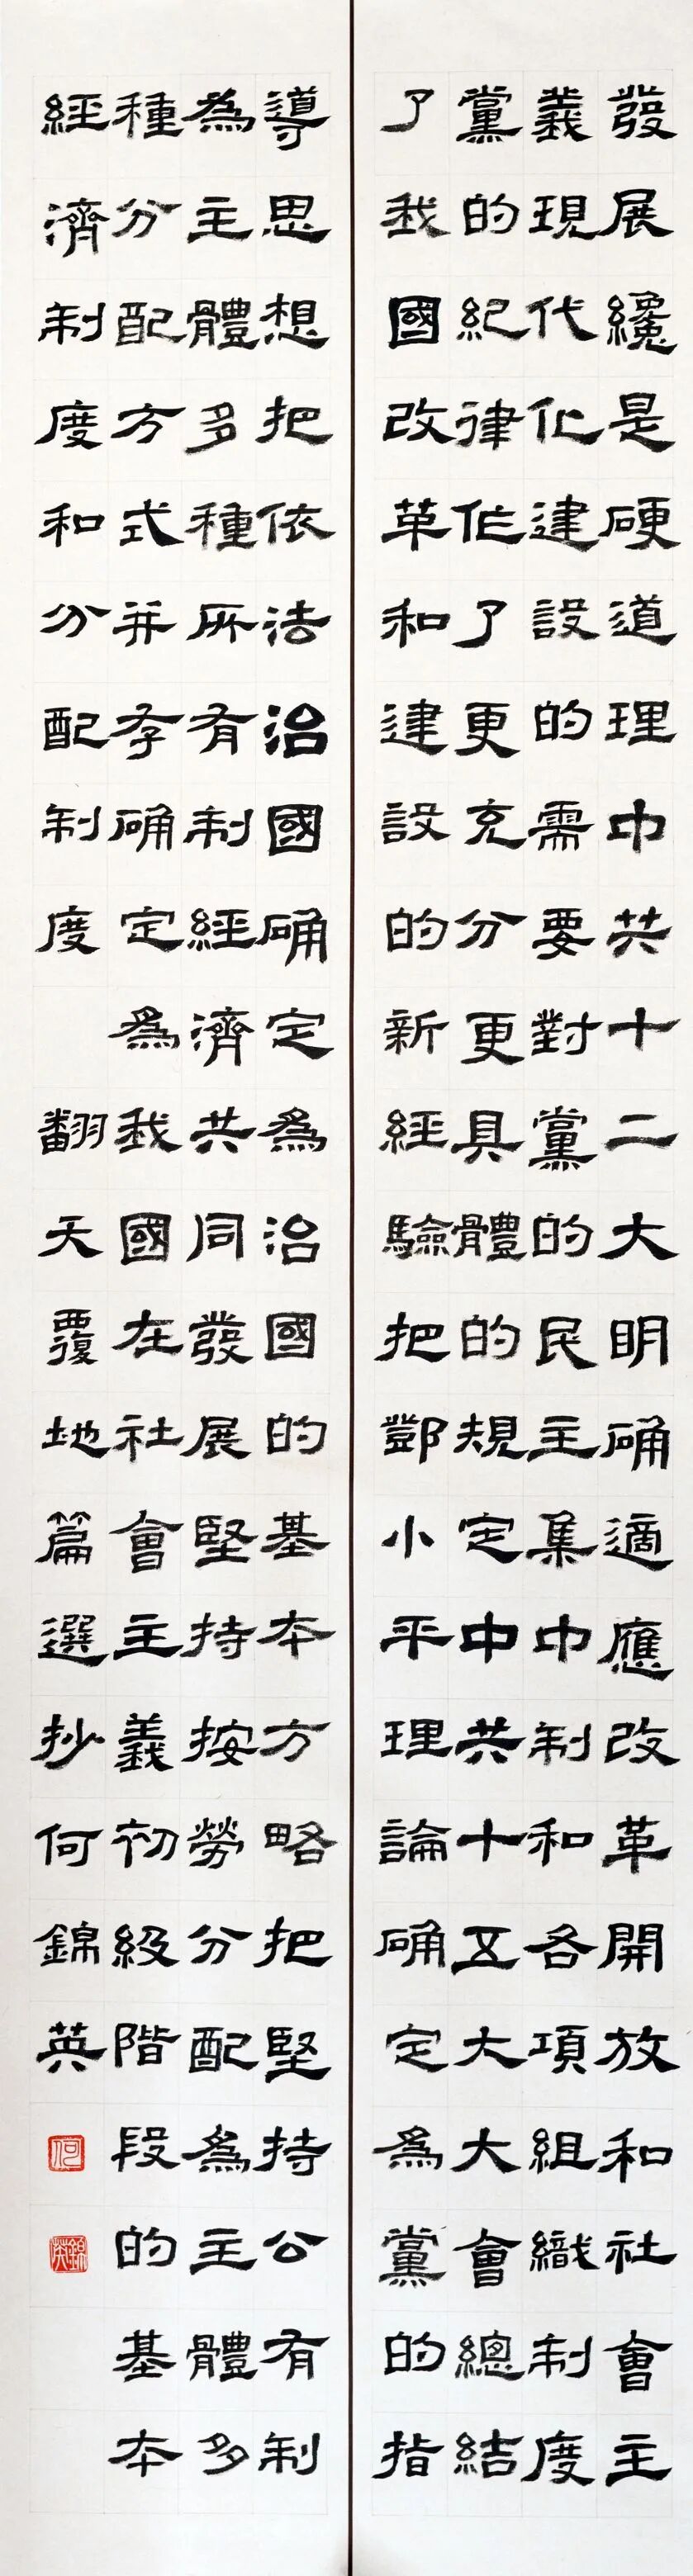 發展纔是硬道理中共十二大明确適應改革開放和社會主
義現代化建設的需要對黨的民主集中制和各項組織制度
黨的紀律作了更充分更具體的規定中共十五大大會總結
了我國改革和建設的新經驗把鄧小平理論确定為黨的指
導思想把依法治國确定為治國的基本方略把堅持公有制
為主體多種所有制經濟共同發展堅持按勞分配為主體多
種分配方式并存确定為我國在社會主義初級階段的基本
經濟制度和分配制度 翻天覆地篇選抄何錦英
何
錦英